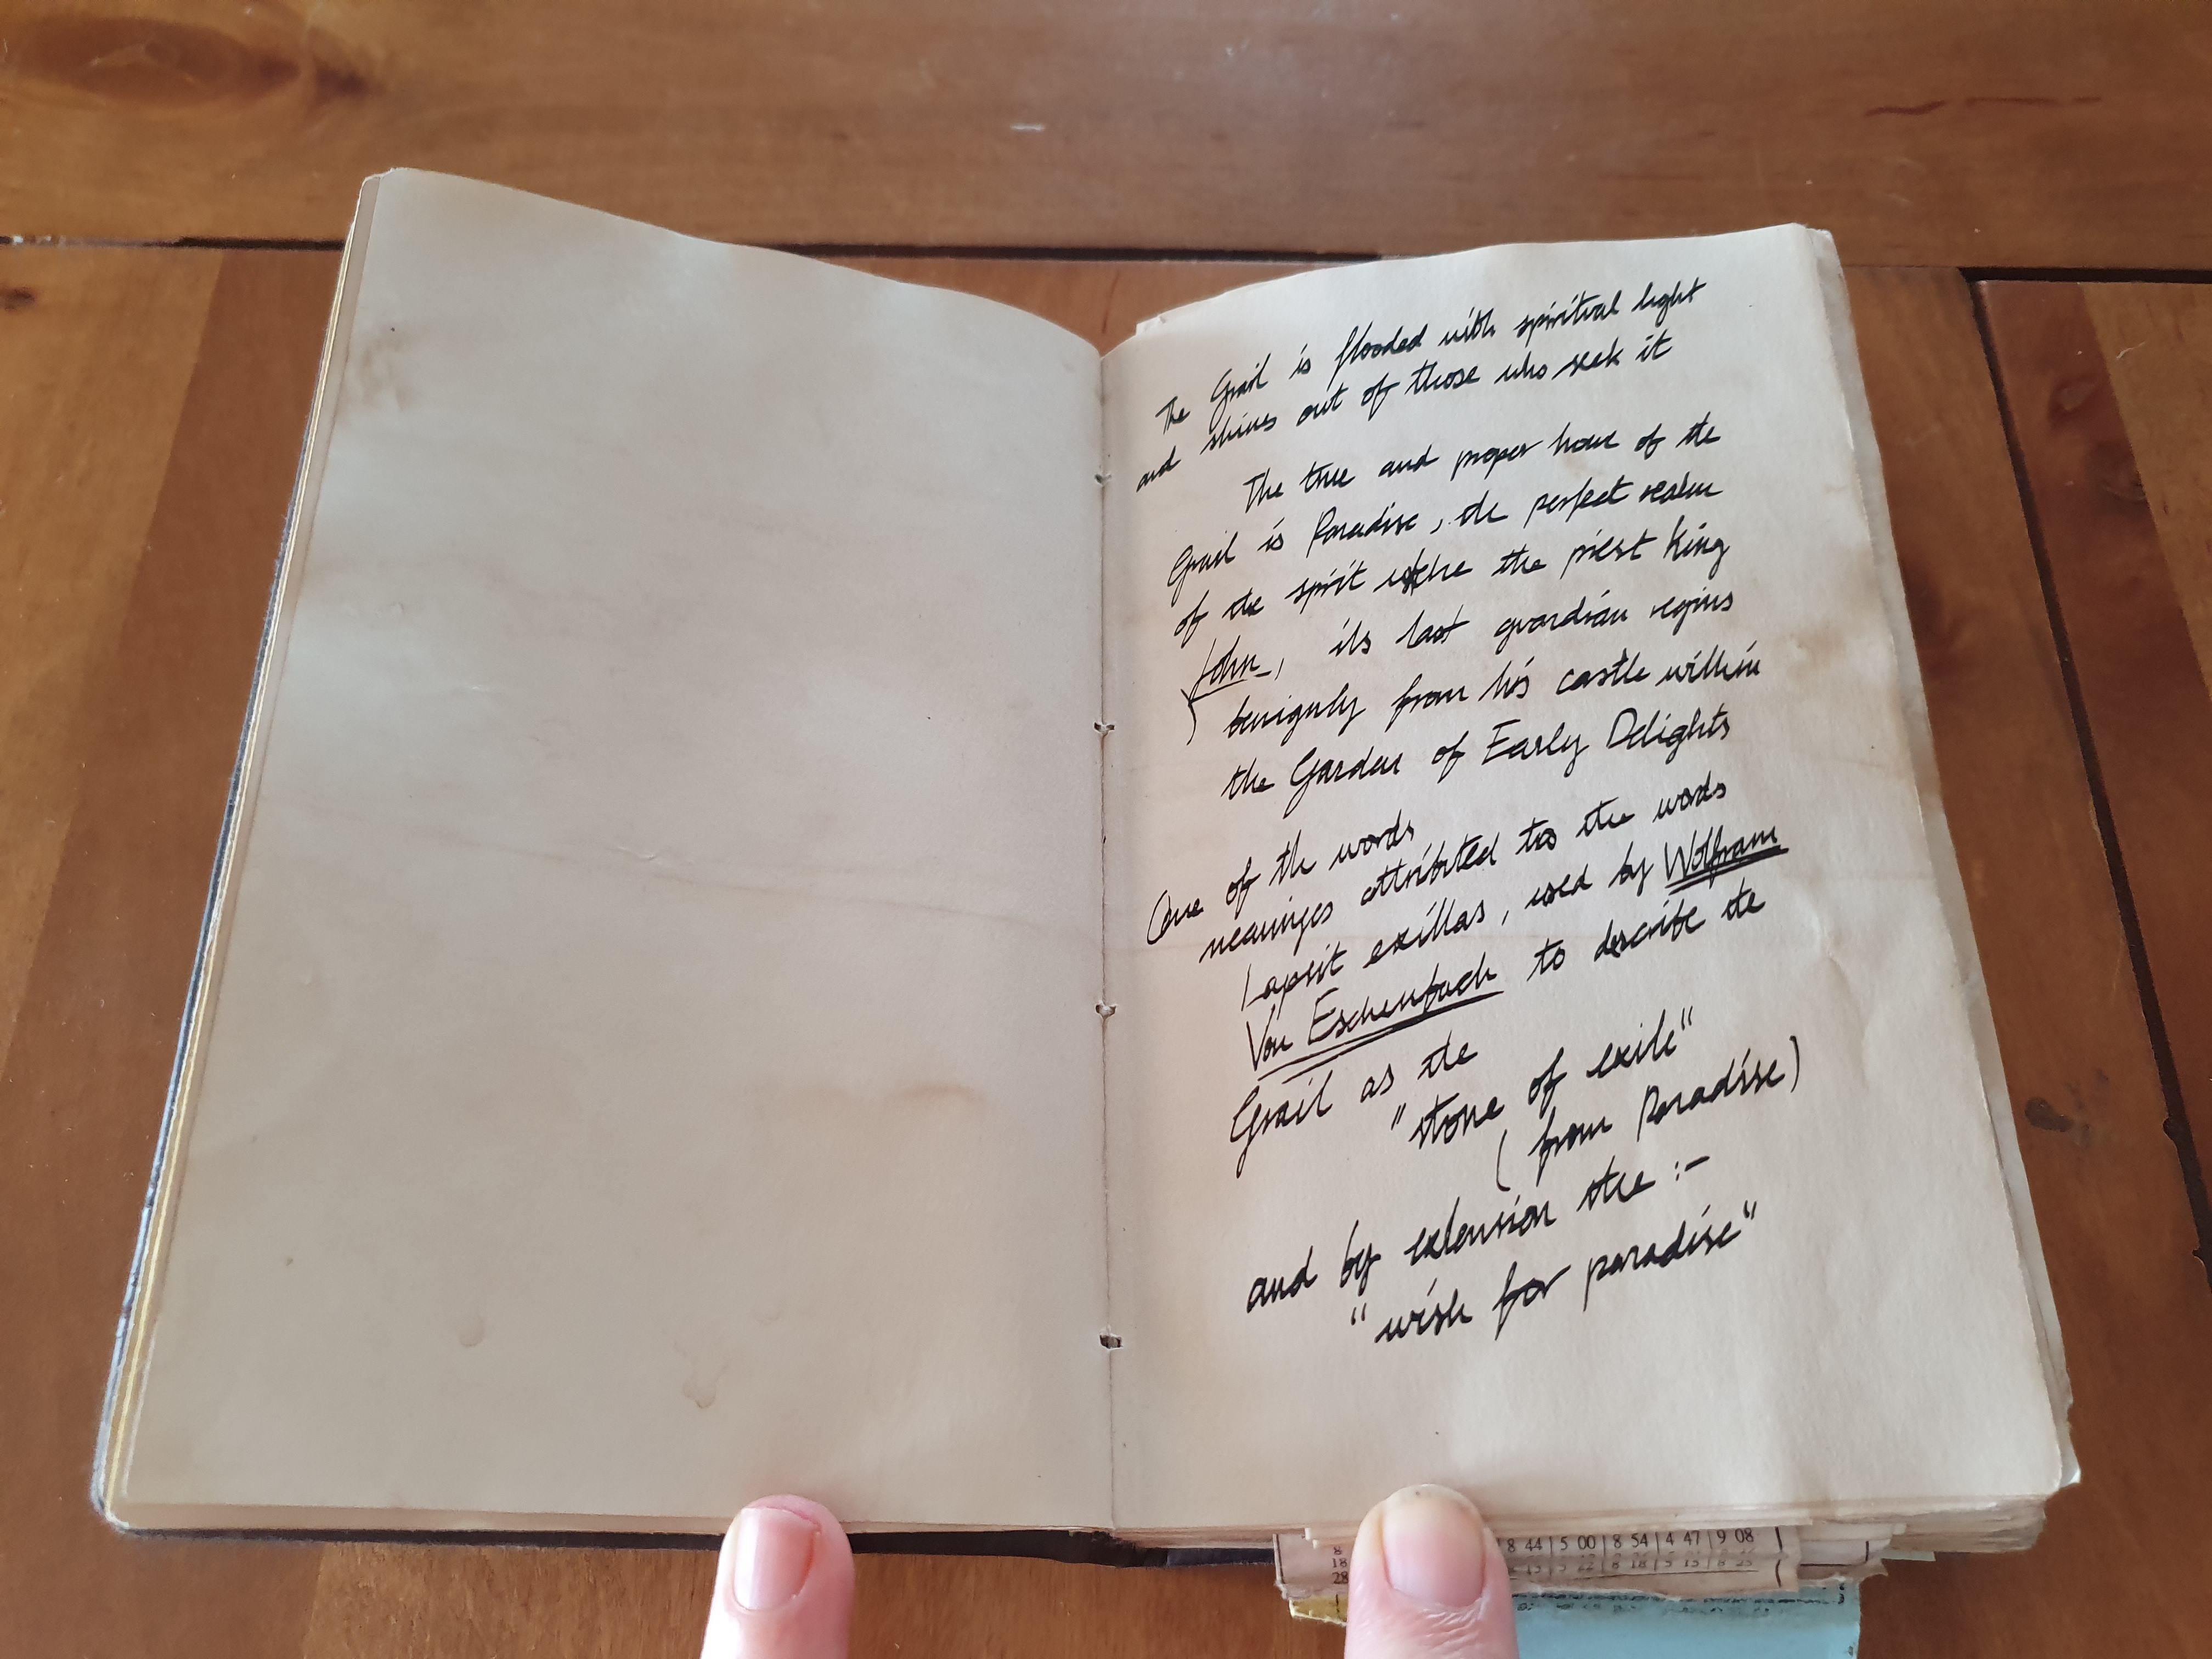 The Grail is flooded with spiritual light
and shines out of those who seek it
The true and proper home of the
Grail is Paradise, the perfect realm
of the spirit where the priest King
John, its last guardian regins
benignly from his castle within
the Garden of Early Delights
One of the words
meanings attributed to the words
Lapsit exillas, used by Wolfram
Von Eschenbach to describe the
Grail as the
"stone of exile"
(from Paradise)
and by extension the :-
"wish for paradise"
8 44 5 00 8 54 4 47 9 08
18
28